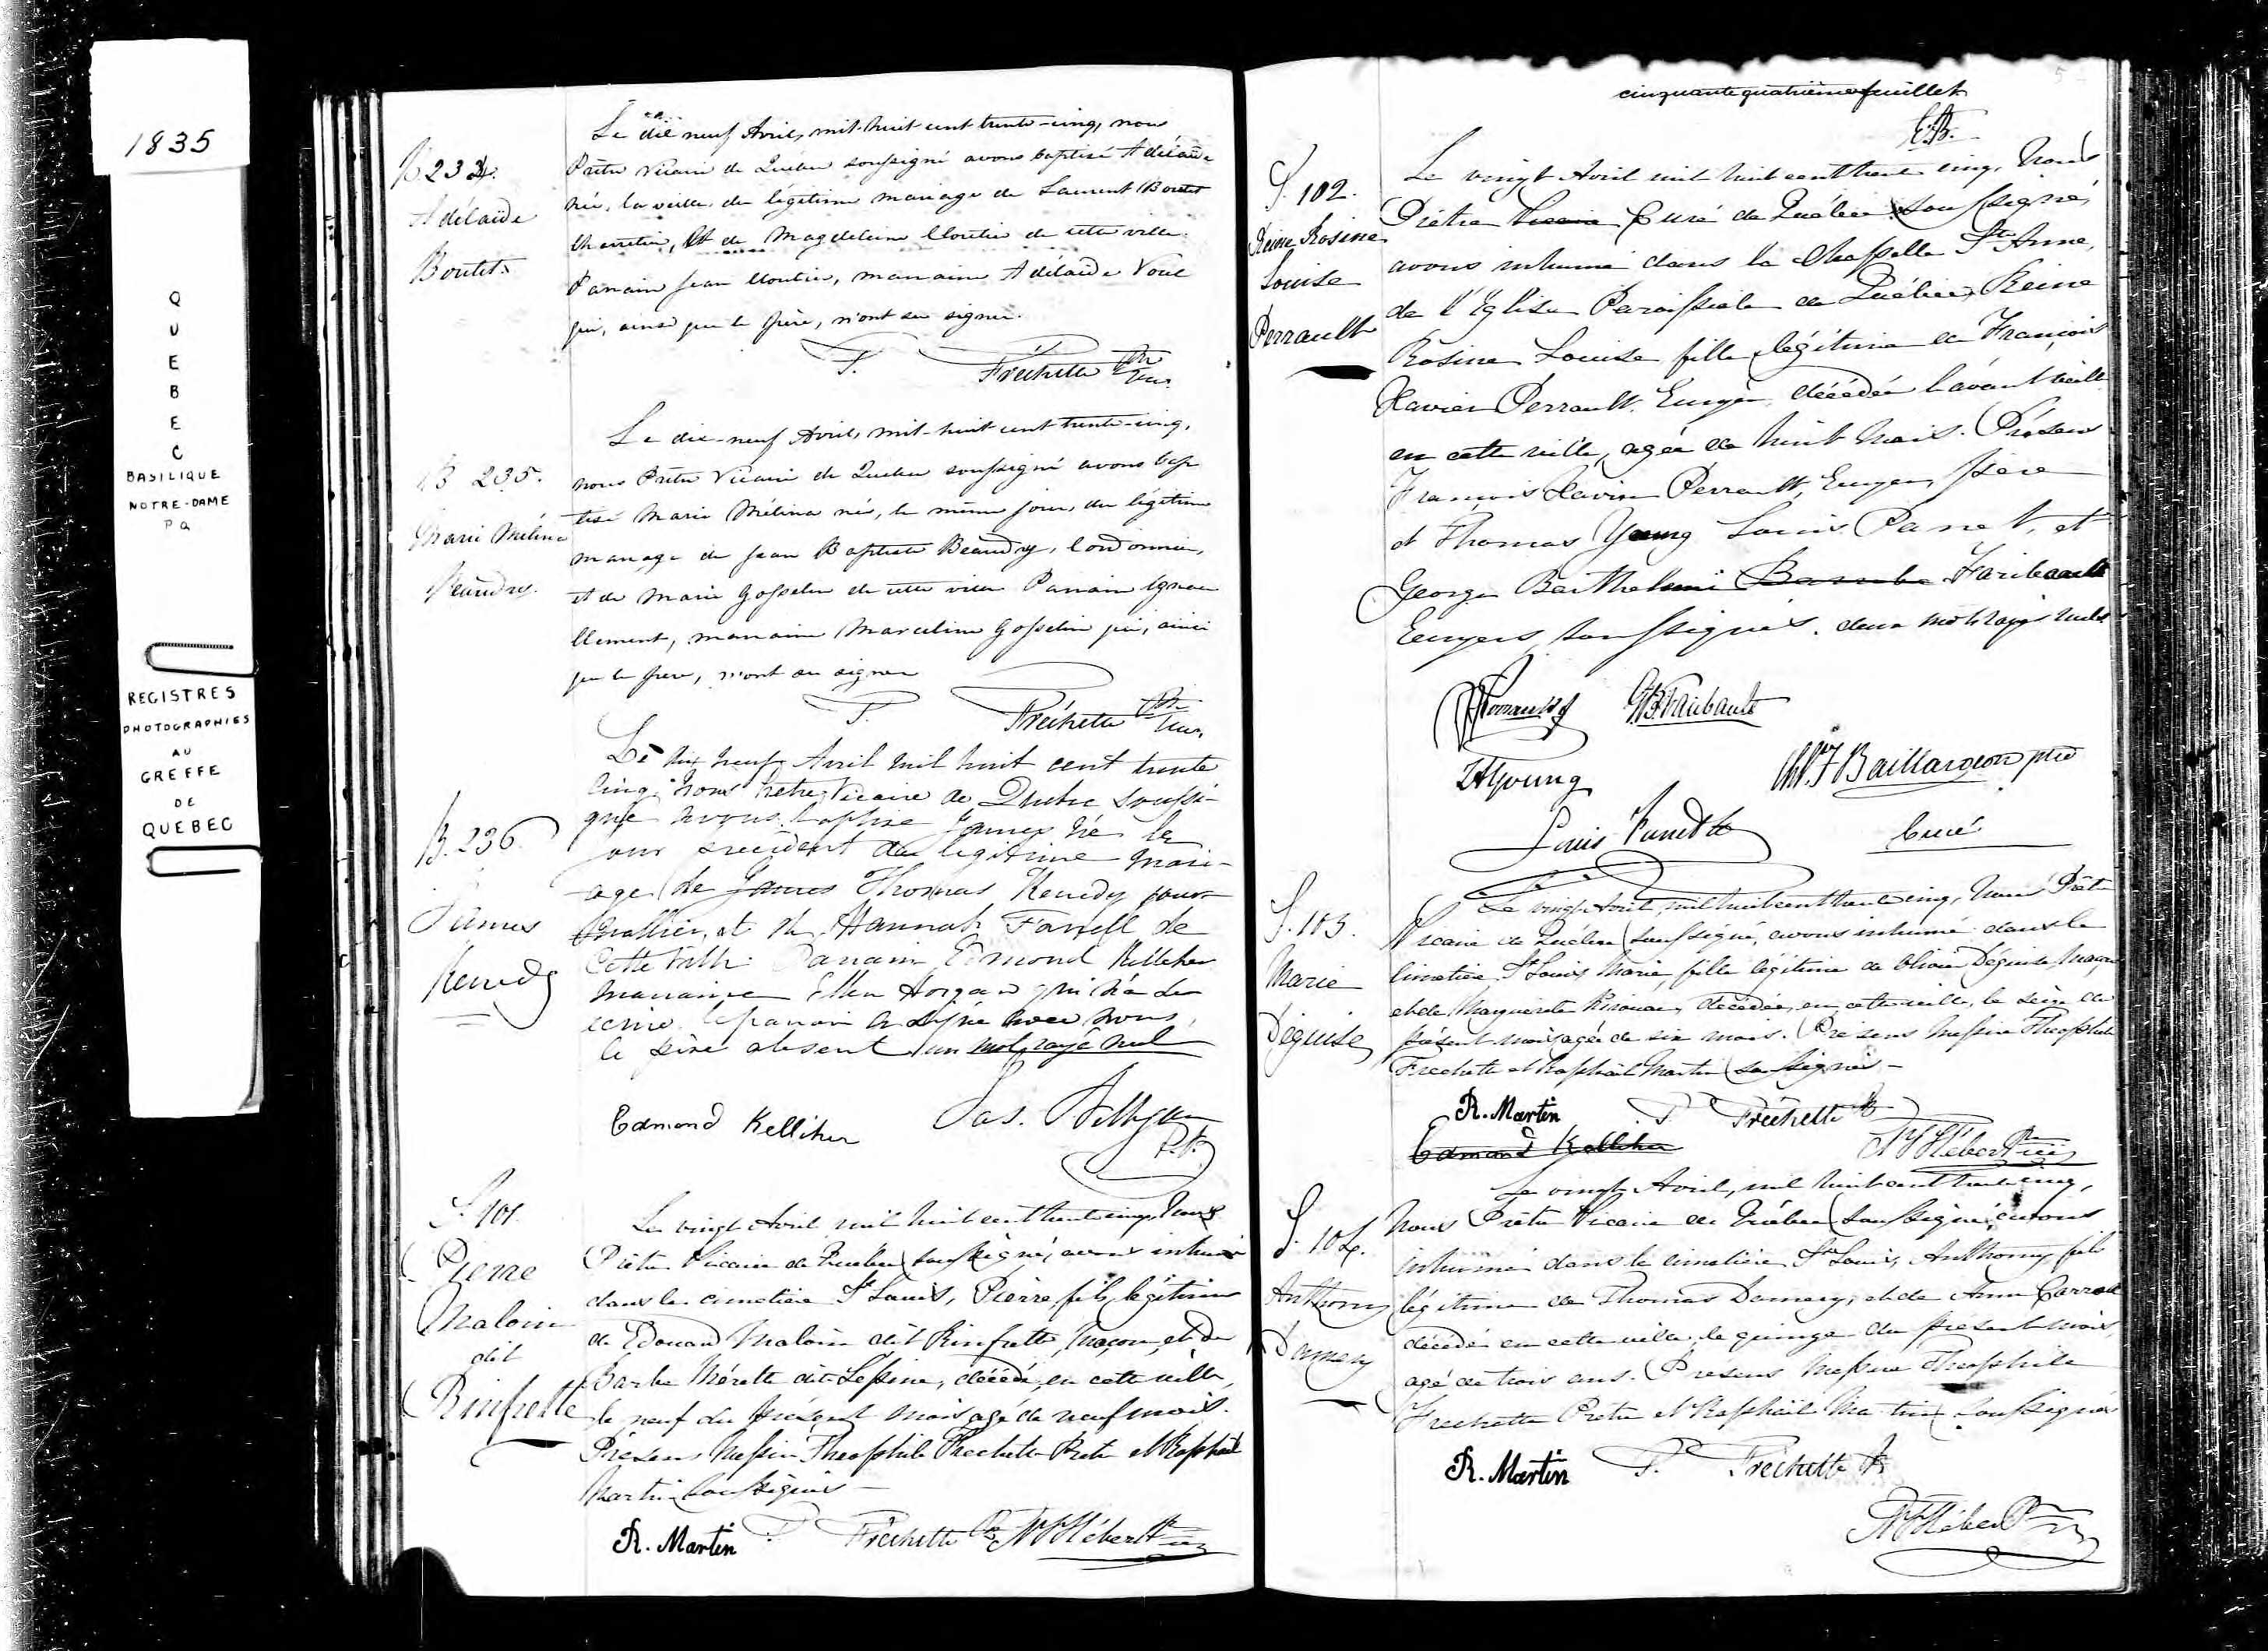 1835
QUEBEC
BASILIQUE
NOTRE-DAME
P Q
REGISTRES
PHOTOGRAPHIES
AU
GREFFE
DE
QUEBEC
B 234.
Adélaïde
Boutet
Le dix neuf Avril, mil-huit cent trente-cinq, nous
Prêtre Vicaire de Québec soussigné avons baptisé Adélaïde
née, la veille, du légitime mariage de Laurent Boutet
Charretier, et de Magdeleine Cloutier de cette ville.
Parrain Jean Cloutier, marraine Adélaïde
qui, ainsi que le père, n'ont su signer.
F. Fréchette Ptre
Vic.
B 235.
Marie Mélina
Beaudry.
Le dix-neuf Avril, mil-huit cent trente-cinq,
nous Prêtre Vicaire de Québec soussigné avons bap
tisé Marie Mélina née, le même jour, du légitime
mariage de Jean Baptiste Beaudry, Cordonnier,
et de Marie Gosselin de cette ville Parrain Ignace
Clement, marraine Marceline Gosselin qui, ainsi
que le père, n'ont su signer
F. Fréchette Ptre
Vic.
B. 236
James
Kenedy
Le dix neuf Avril mil huit cent trente
Cinq Nous Prêtre Vicaire de Quebec soussi-
gné avons baptisé James né le
jour precedent du legitime mari-
age de James Thomas Kenedy jour-
nallier, et de Hannah Farrell de
Cette Ville. Parrain Edmond Kelleher
marraine Ellen Horgan qui n'a su
ecrire. le parrain a signé avec nous,
le père absent un mot rayé nul
Edmond Kelliher Jas.
S. 101.
Pierre
Malouin
dit
Rinfrette
Le vingt Avril mil huit cent trente cinq, Nous
Prêtre Vicaire de Québec soussigné, avons inhumé
dans le cimetière St Louis, Pierre, fils légitime
de Edouard Malouin dit Rinfrette, Maçon, et de
Barbe Mérette dit Lépine, décédé, en cette ville,
le neuf du présent mois agé de neuf mois.
Présens Messire Theophile Frechette Prêtre et Raphaël
Martin soussignés —
R. Martin F. Fréchette Ptre N F Hébert Ptre
cinquante quatrième feuillet
E.B.
S. 102.
Reine Rosine
Louise
Perrault
Le vingt Avril mil huit cent trente cinq, Nous
Prêtre Vicaire Curé de Québec soussigné,
avons inhumé dans la Chapelle Ste Anne,
de l'Eglise Paroissiale de Québec, Reine
Rosine Louise fille légitime de François
Xavier Perrault, Ecuyer, décédée l'avant veille
en cette ville, agée de huit mois. Présens
François Xavier Perrault, Ecuyer, père
et Thomas Young Louis Panet, et
George Barthelemi Faribault
Ecuyers soussignés. deux mots rayés nuls
GB Faribault
Young
Chs. F Baillargeon ptre
Louis Panet
Curé
S. 103.
Marie
Déguise
Le vingt Avril, mil huit cent trente cinq, Nous Prêtre
Vicaire de Québec soussigné, avons inhumé dans le
Cimetière St Louis, Marie, fille légitime de Olivier Déguise, Maçon
et de Marguerite décédée, en cette ville, le seize du
présent mois, agée de six mois. Présens Messire Theophile
Frechette et Raphaël Martin soussignés —
R. Martin F. Fréchette Ptre
Edmond Kelliher N F Hébert Ptre
S. 104.
Anthony
Damery
Le vingt Avril, mil huit cent trente cinq,
Nous Prêtre Vicaire de Québec soussigné, avons
inhumé dans le cimetière St Louis, Anthony fils
légitime de Thomas Damery, et de Ann Carroll
décédé en cette ville, le quinze du present mois,
agé de trois ans. Présens Messire Theophile
Frechette Prêtre et Raphaël Martin soussignés
R. Martin F. Fréchette Ptre
N F Hébert Ptre